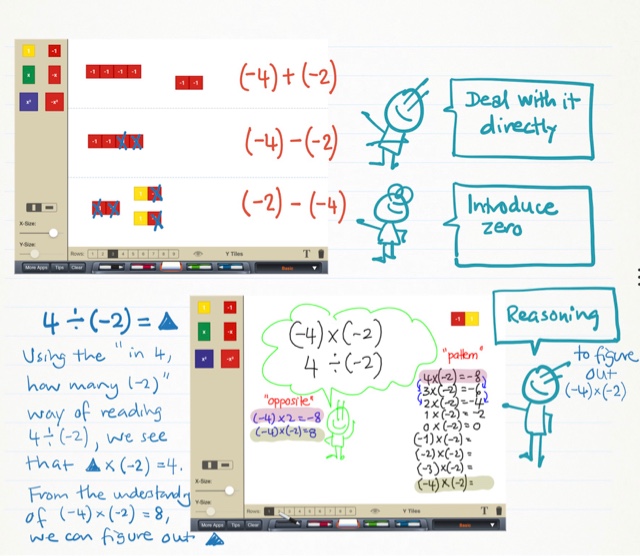 1
-1
x
-x
x²
-x²
-1 -1 -1 -1
-1 -1
(-4)+(-2)
Deal with it
directly
-1 -1
(-4)-(-2)
(-2)-(-4)
Introduce
zero
X-Size:
Y-Size:
Rows: 1 2 3 4 5 6 7 8 9
Y Tiles
T
More Apps
Tips
Clear
Basic
4÷(-2)=▲
Using the "in 4,
how many (-2)"
way of reading
4÷(-2), we see
that ▲×(-2)=4.
From the understandg
of (-4)×(-2)=8,
we can figure out ▲
1
-1
x
-x
x²
-x²
(-4)×(-2)
4÷(-2)
-1 1
"opposite"
(-4)×2=-8
(-4)×(-2)=8
"pattern"
4×(-2)=-8
3×(-2)=-6
2×(-2)=-4
1×(-2)=-2
0×(-2)=0
(-1)×(-2)=
(-2)×(-2)=
(-3)×(-2)=
(-4)×(-2)=
Reasoning
to figure
out
(-4)×(-2)
X-Size:
Y-Size:
Rows:
Y Tiles
T
More Apps
Tips
Clear
Basic